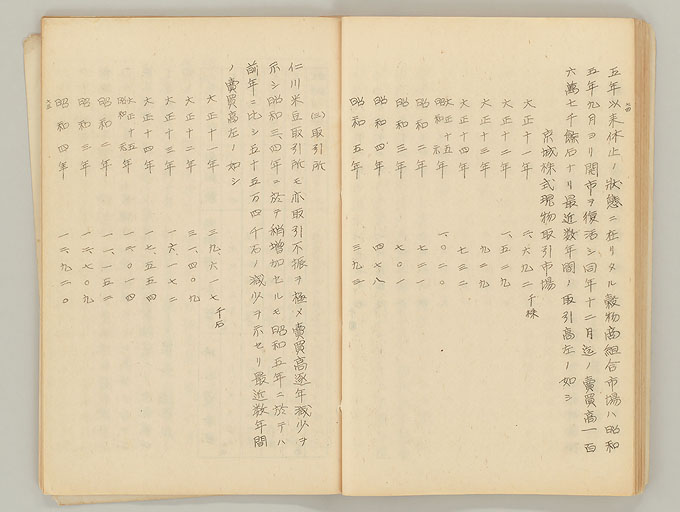 五年以来休止ノ狀態ニ在リタル穀物商組合市場ハ昭和
五年九月ヨリ開市ヲ復活シ同年十二月迄ノ賣買高一百
六萬七千餘石ナリ最近数年間ノ取引高左ノ如シ
京城株式現物取引市場
大正十一年 六九二千株
大正十二年 一、五二九
大正十三年 九二九
大正十四年 七三二
大正十五 昭和元年 一〇二二
昭和二年 七二一
昭和三年 七〇一
昭和四年 四七八
昭和五年 三九三
(三)取引所
仁川米豆取引所モ亦取引不振ヲ極メ賣買高逐年減少ヲ
示シ昭和三、四年ニ於テ稍増加セルモ昭和五年ニ於テハ
前年ニ比シ五十五万四千石ノ減少ヲ示セリ最近数年間
ノ賣買高左ノ如シ
大正十一年 三九、六一七千石
大正十二年 三一、四〇九
大正十三年 一六、一七二
大正十四年 一七、五五四
大正十五 昭和元年 一六、〇一四
昭和二年 一一、一五二
昭和三年 一二、七〇九
昭和四年 一二、九二〇